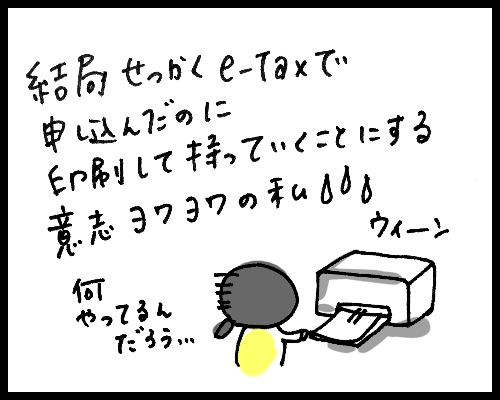 結局せっかくe-Taxで
申し込んだのに
印刷して持っていくことにする
意志ヨワヨワの私
ウィーン
何
やってるん
だろう…